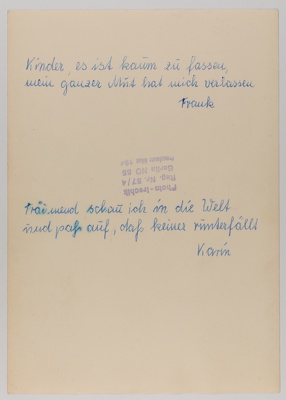 Kinder, es ist kaum zu fassen,
mein ganzer Mut hat mich verlassen
Frank
Photo-
Reg. Nr. 57/4
Berlin NO 55
Träumend schau ich in die Welt
und paß auf, daß keiner runterfällt
Karin